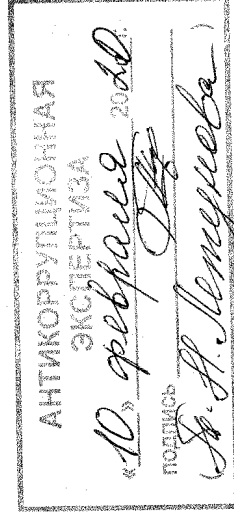 АНТИКОРРУПЦИОННАЯ
ЭКСПЕРТИЗА
«10» февраля 2020 г.
подпись
Н. Летунева)